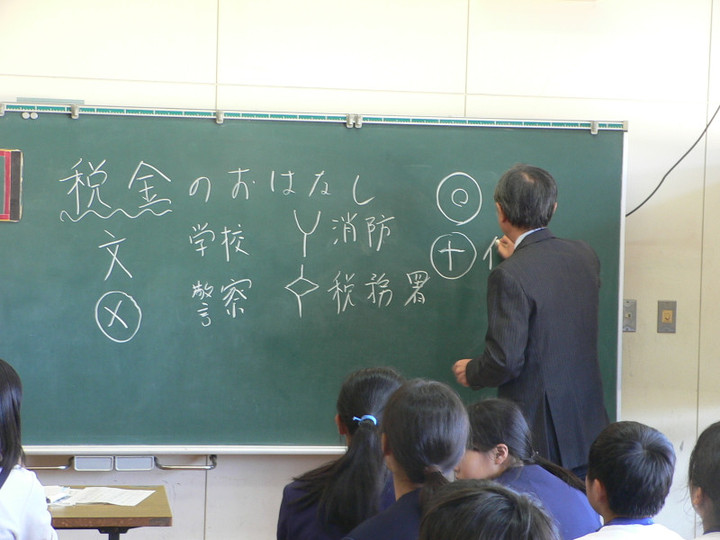 税金のおはなし
文 学校 消防
警察 税務署